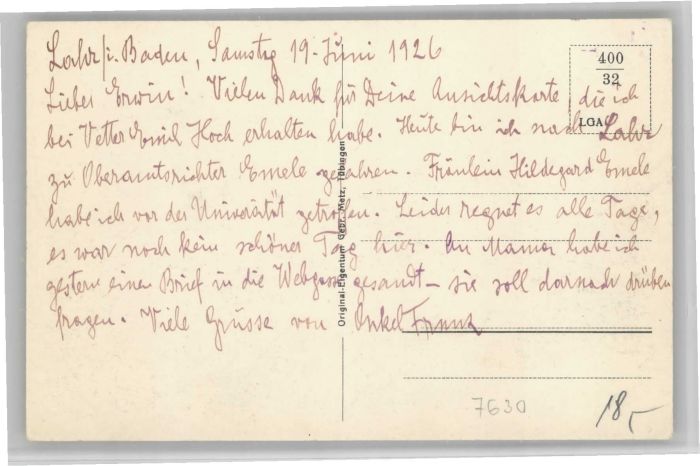 Lahr/i. Baden, Samstag 19. Juni 1926
Lieber Erwin! Vielen Dank für Deine Ansichtskarte, die ich
bei Vetter Emil Hoch erhalten habe. Heute bin ich nach Lahr
zu Oberamtsrichter Emele gefahren. Fräulein Hildegard Emele
habe ich vor der Universität getroffen. Leider regnet es alle Tage,
es war noch kein schöner Tag hier. An Mama habe ich
gestern einen Brief in die Webgasse gesandt – sie soll darnach drüben
fragen. Viele Grüsse von Onkel Franz
400
32
LGA
Original-Eigentum Gebr. Metz, Tübingen
7630
18,-